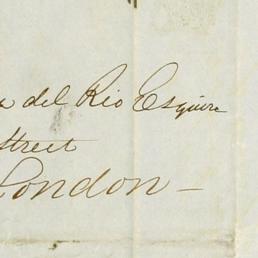 del Rio Esquire
Street
London –